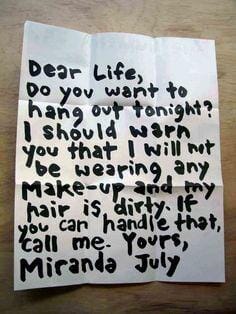 Dear Life,
Do you want to
hang out tonight?
I should warn
you that I will not
be wearing any
make-up and my
hair is dirty. If
you can handle that,
call me. Yours,
Miranda July